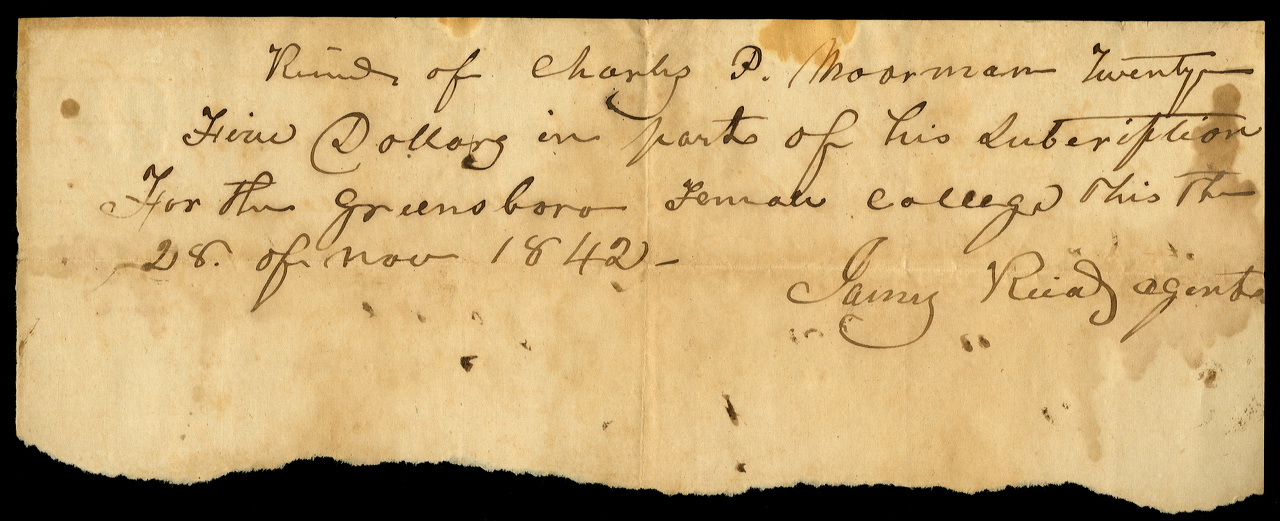 Recd of Charles P. Moorman Twenty
Five Dollars in part of his Subcription
For the Greensboro Female College This The
28. of nov 1842 –
James Reid agent